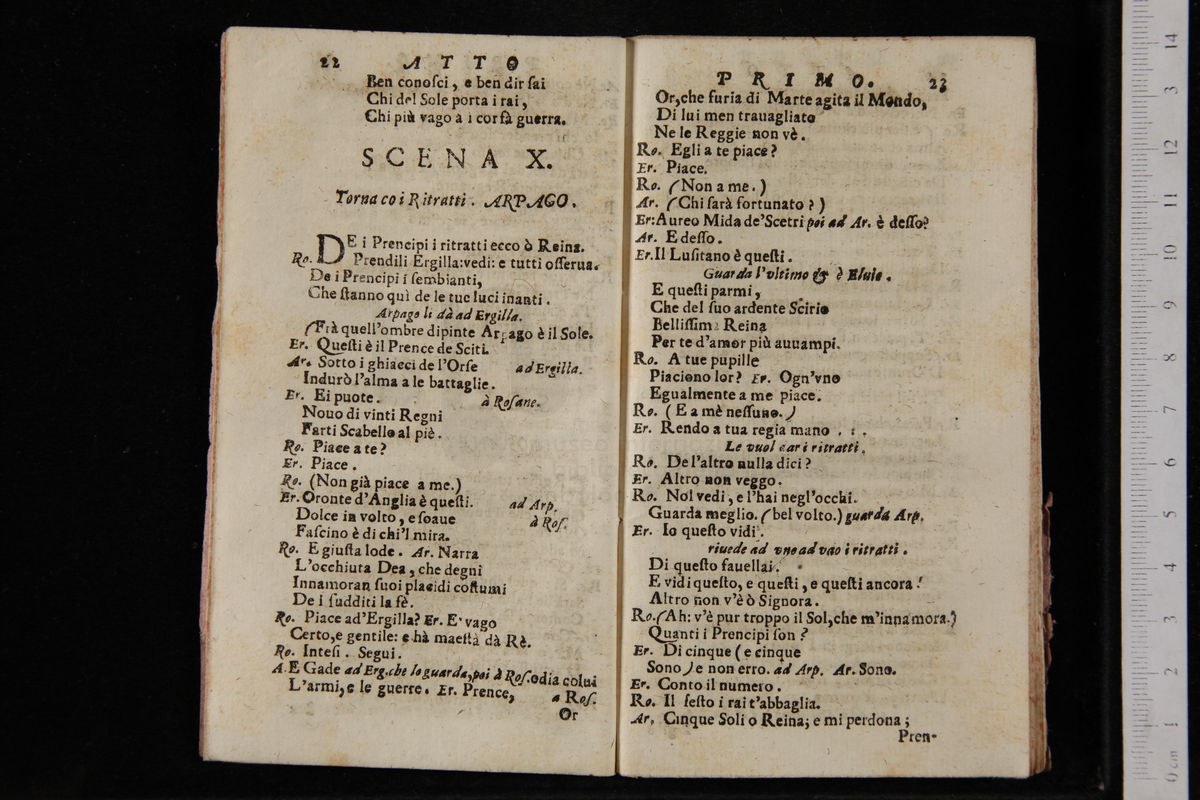 22 ATTO
Ben conoſci, e ben dir ſai
Chi del Sole porta i rai,
Chi più vago à i cor fà guerra.
SCENA X.
Torna co i Ritratti. ARPAGO.
DE i Prencipi i ritratti ecco ò Reina.
Ro. Prendili Ergilla: vedi: e tutti oſſerua.
De i Prencipi i ſembianti,
Che ſtanno quì de le tue luci inanti.
Arpago li dà ad Ergilla.
(Frà quell'ombre dipinte Arpago è il Sole.
Er. Queſti è il Prence de Sciti.
Ar. Sotto i ghiacci de l'Orſe ad Ergilla.
Indurò l'alma a le battaglie.
Er. Ei puote. à Roſane.
Nouo di vinti Regni
Farti Scabello al piè.
Ro. Piace a te?
Er. Piace.
Ro. (Non già piace a me.)
Er. Oronte d'Anglia è queſti. ad Arp.
Dolce in volto, e ſoaue à Roſ.
Faſcino è di chi'l mira.
Ro. E giuſta lode. Ar. Narra
L'occhiuta Dea, che degni
Innamoran ſuoi placidi coſtumi
De i ſudditi la fè.
Ro. Piace ad'Ergilla? Er. E' vago
Certo, e gentile: e hà maeſtà dà Rè.
Ro. Inteſi. Segui.
A. E Gade ad Erg. che lo guarda, poi à Roſ. odia colui
L'armi, e le guerre. Er. Prence, a Roſ.
Or
PRIMO. 23
Or, che furia di Marte agita il Mondo,
Di lui men trauagliato
Ne le Reggie non vè.
Ro. Egli a te piace?
Er. Piace.
Ro. (Non a me.)
Ar. (Chi ſarà fortunato?)
Er: Aureo Mida de'Scetri poi ad Ar. è deſſo?
Ar. E deſſo.
Er. Il Luſitano è queſti.
Guarda l'vltimo & è
E queſti parmi,
Che del ſuo ardente Scirio
Belliſſima Reina
Per te d'amor più auuampi.
Ro. A tue pupille
Piaciono lor? Er. Ogn'vno
Egualmente a me piace.
Ro. (E a mè neſſuno.)
Er. Rendo a tua regia mano . : .
Le vuol i ritratti.
Ro. De l'altro nulla dici?
Er. Altro non veggo.
Ro. Nol vedi, e l'hai negl'occhi.
Guarda meglio. (bel volto.) guarda Arp.
Er. Io queſto vidi.
riuede ad vno ad vno i ritratti.
Di queſto fauellai.
E vidi queſto, e queſti, e queſti ancora!
Altro non v'è ò Signora.
Ro. (Ah: v'è pur troppo il Sol, che m'innamora.)
Quanti i Prencipi ſon?
Er. Di cinque (e cinque
Sono) e non erro. ad Arp. Ar. Sono.
Er. Conto il numero.
Ro. Il ſeſto i rai t'abbaglia.
Ar. Cinque Soli o Reina; e mi perdona;
Pren-
0 cm 1 2 3 4 5 6 7 8 9 10 11 12 3 14